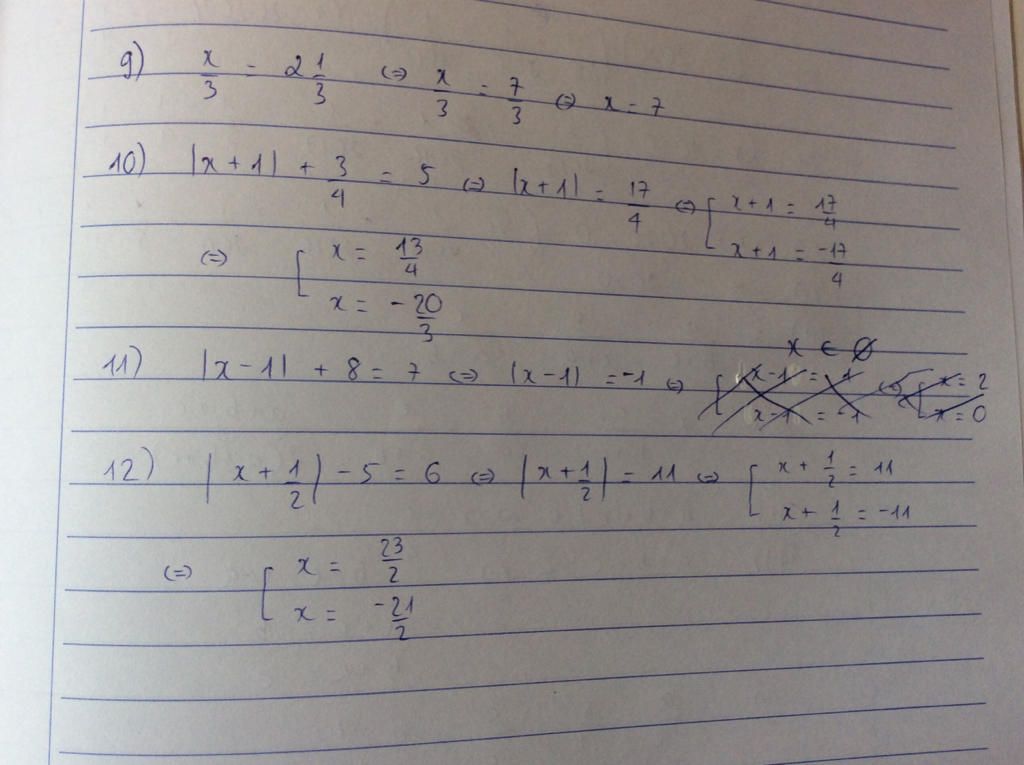 9) x/3 = 2 1/3 <=> x/3 = 7/3 <=> x = 7
10) |x + 1| + 3/4 = 5 <=> |x + 1| = 17/4 <=> [ x + 1 = 17/4
x + 1 = -17/4
<=> [ x = 13/4
x = -20/3
x ∈ ∅
11) |x - 1| + 8 = 7 <=> |x - 1| = -1 <=> [ x - 1 = 1 <=> [ x = 2
x - 1 = -1 x = 0
12) |x + 1/2| - 5 = 6 <=> |x + 1/2| = 11 <=> [ x + 1/2 = 11
x + 1/2 = -11
<=> [ x = 23/2
x = -21/2